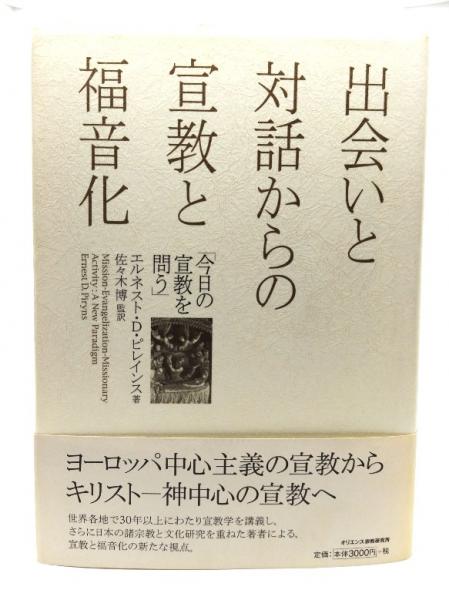 出会いと
対話からの
宣教と
福音化
「今日の
宣教を
問う」
エルネスト・D・ピレインス 著
佐々木博 監訳
Mission-Evangelization-Missionary
Activity: A New Paradigm
Ernest D. Piryns
ヨーロッパ中心主義の宣教から
キリスト―神中心の宣教へ
世界各地で30年以上にわたり宣教学を講義し、
さらに日本の諸宗教と文化研究を重ねた著者による、
宣教と福音化の新たな視点。
オリエンス宗教研究所
定価：本体3000円+税